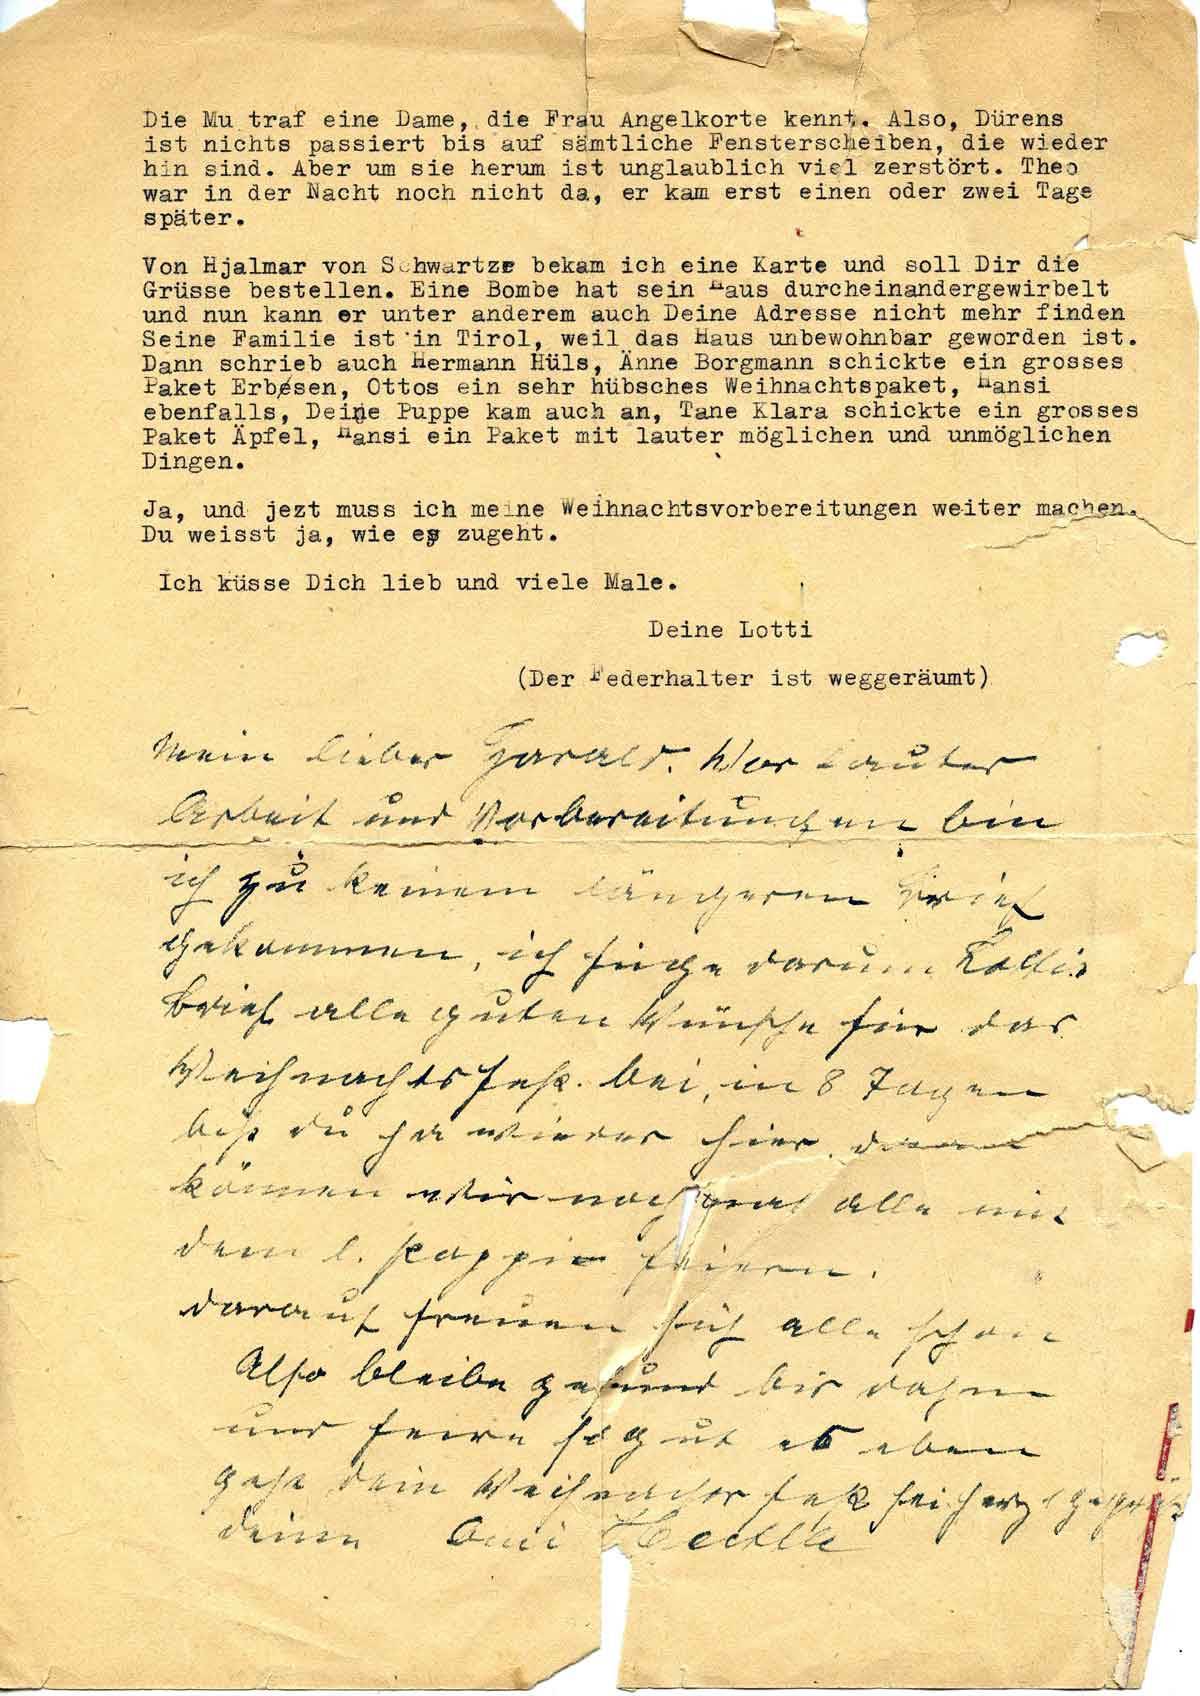 Die Mu traf eine Dame, die Frau Angelkorte kennt. Also, Dürens
ist nichts passiert bis auf sämtliche Fensterscheiben, die wieder
hin sind. Aber um sie herum ist unglaublich viel zerstört. Theo
war in der Nacht noch nicht da, er kam erst einen oder zwei Tage
später.
Von Hjalmar von Schwartze bekam ich eine Karte und soll Dir die
Grüsse bestellen. Eine Bombe hat sein Haus durcheinandergewirbelt
und nun kann er unter anderem auch Deine Adresse nicht mehr finden
Seine Familie ist in Tirol, weil das Haus unbewohnbar geworden ist.
Dann schrieb auch Hermann Hüls, Änne Borgmann schickte ein grosses
Paket Erbsen, Ottos ein sehr hübsches Weihnachtspaket, Hansi
ebenfalls, Deine Puppe kam auch an, Tane Klara schickte ein grosses
Paket Äpfel, Hansi ein Paket mit lauter möglichen und unmöglichen
Dingen.
Ja, und jezt muss ich meine Weihnachtsvorbereitungen weiter machen.
Du weisst ja, wie es zugeht.
Ich küsse Dich lieb und viele Male.
Deine Lotti
(Der Federhalter ist weggeräumt)
Mein lieber Harald. Vor lauter
Arbeit und Vorbereitungen bin
ich zu keinem längeren Brief
gekommen, ich füge darum Lottis
Brief alle guten Wünsche für das
Weihnachtsfest bei, in 8 Tagen
bist du ja wieder hier, dann
können wir nochmal alle mit
dem l. Pappi feiern.
darauf freuen sich alle schon
Also bleibe gesund bis dahin
und feire so gut es eben
geht dein Weihnachtsfest sei herzl
deine Omi